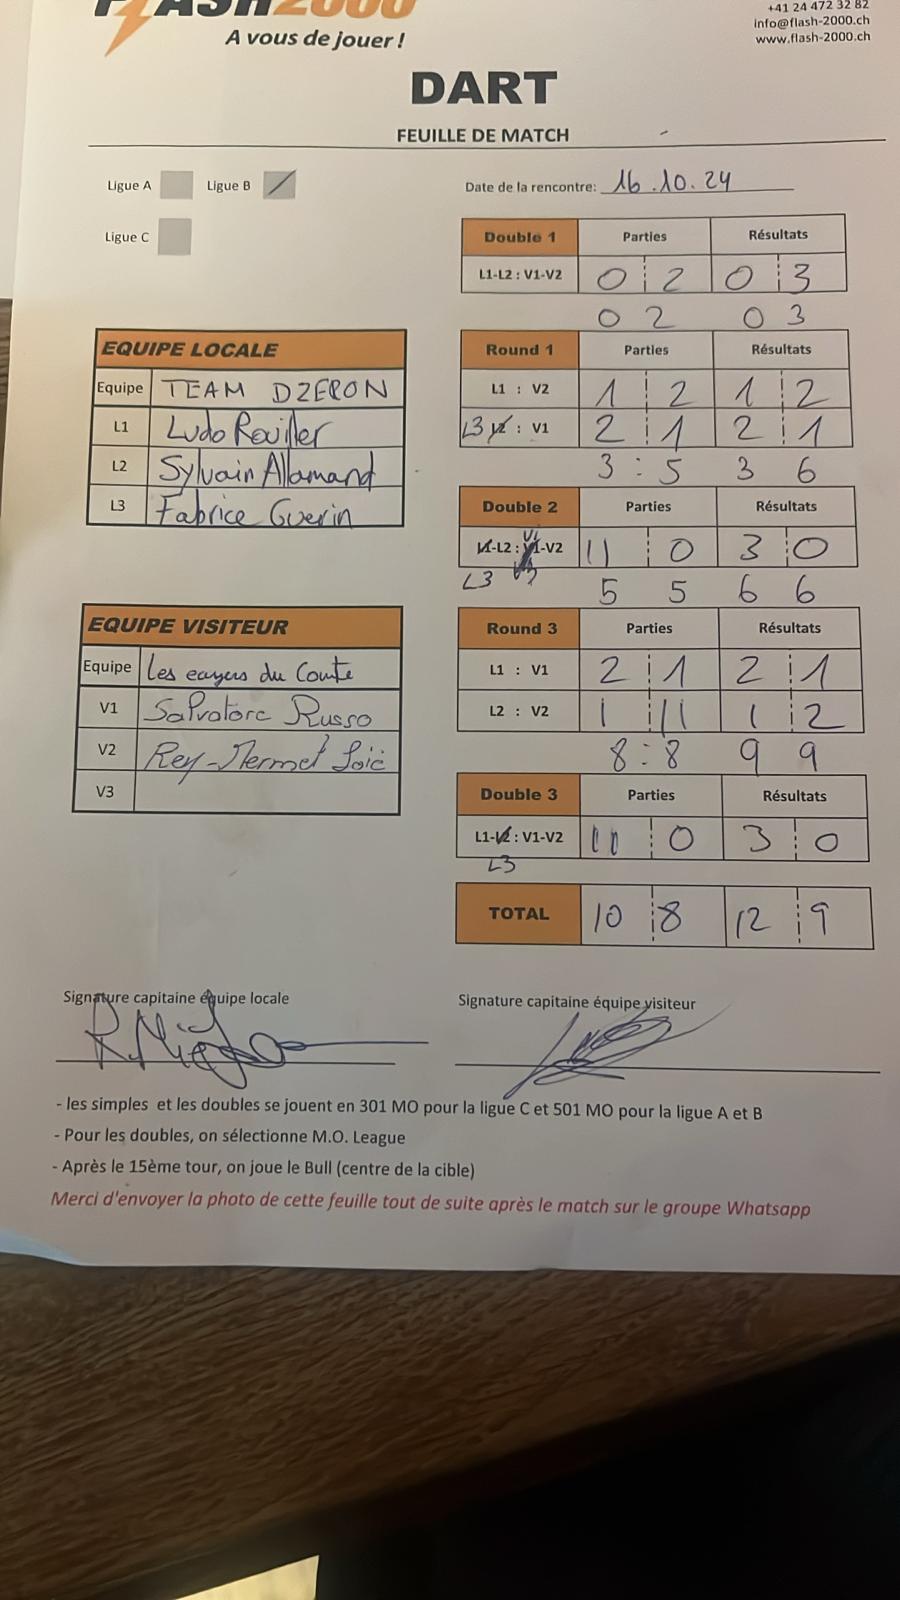 FLASH2000
A vous de jouer !
+41 24 472 32 82
info@flash-2000.ch
www.flash-2000.ch
DART
FEUILLE DE MATCH
Ligue A Ligue B
Ligue C
Date de la rencontre: 16.10.24
Double 1 Parties Résultats
L1-L2 : V1-V2 0 2 0 3
0 2 0 3
EQUIPE LOCALE
Equipe TEAM DZERON
L1 Ludo Rouiller
L2 Sylvain Allamand
L3 Fabrice Guerin
Round 1 Parties Résultats
L1 : V2 1 2 1 2
L3 L2 : V1 2 1 2 1
3 : 5 3 6
Double 2 Parties Résultats
L1-L2 : V1-V2 11 0 3 0
L3
5 5 6 6
EQUIPE VISITEUR
Equipe Les du Comte
V1 Salvatore Russo
V2 Rey-Mermet Loïc
V3
Round 3 Parties Résultats
L1 : V1 2 1 2 1
L2 : V2 1 11 1 2
8 : 8 9 9
Double 3 Parties Résultats
L1-L2 : V1-V2 11 0 3 0
L3
TOTAL 10 8 12 9
Signature capitaine équipe locale
Signature capitaine équipe visiteur
- les simples et les doubles se jouent en 301 MO pour la ligue C et 501 MO pour la ligue A et B
- Pour les doubles, on sélectionne M.O. League
- Après le 15ème tour, on joue le Bull (centre de la cible)
Merci d'envoyer la photo de cette feuille tout de suite après le match sur le groupe Whatsapp